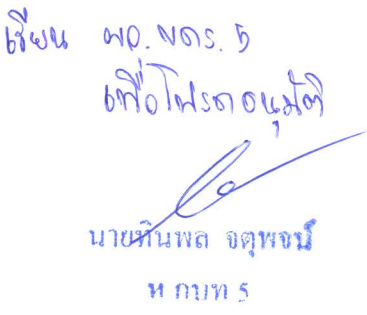 เรียน ผอ. ขดร. 5
เพื่อโปรดอนุมัติ
นายทินพล จตุพจน์
ห กบท 5